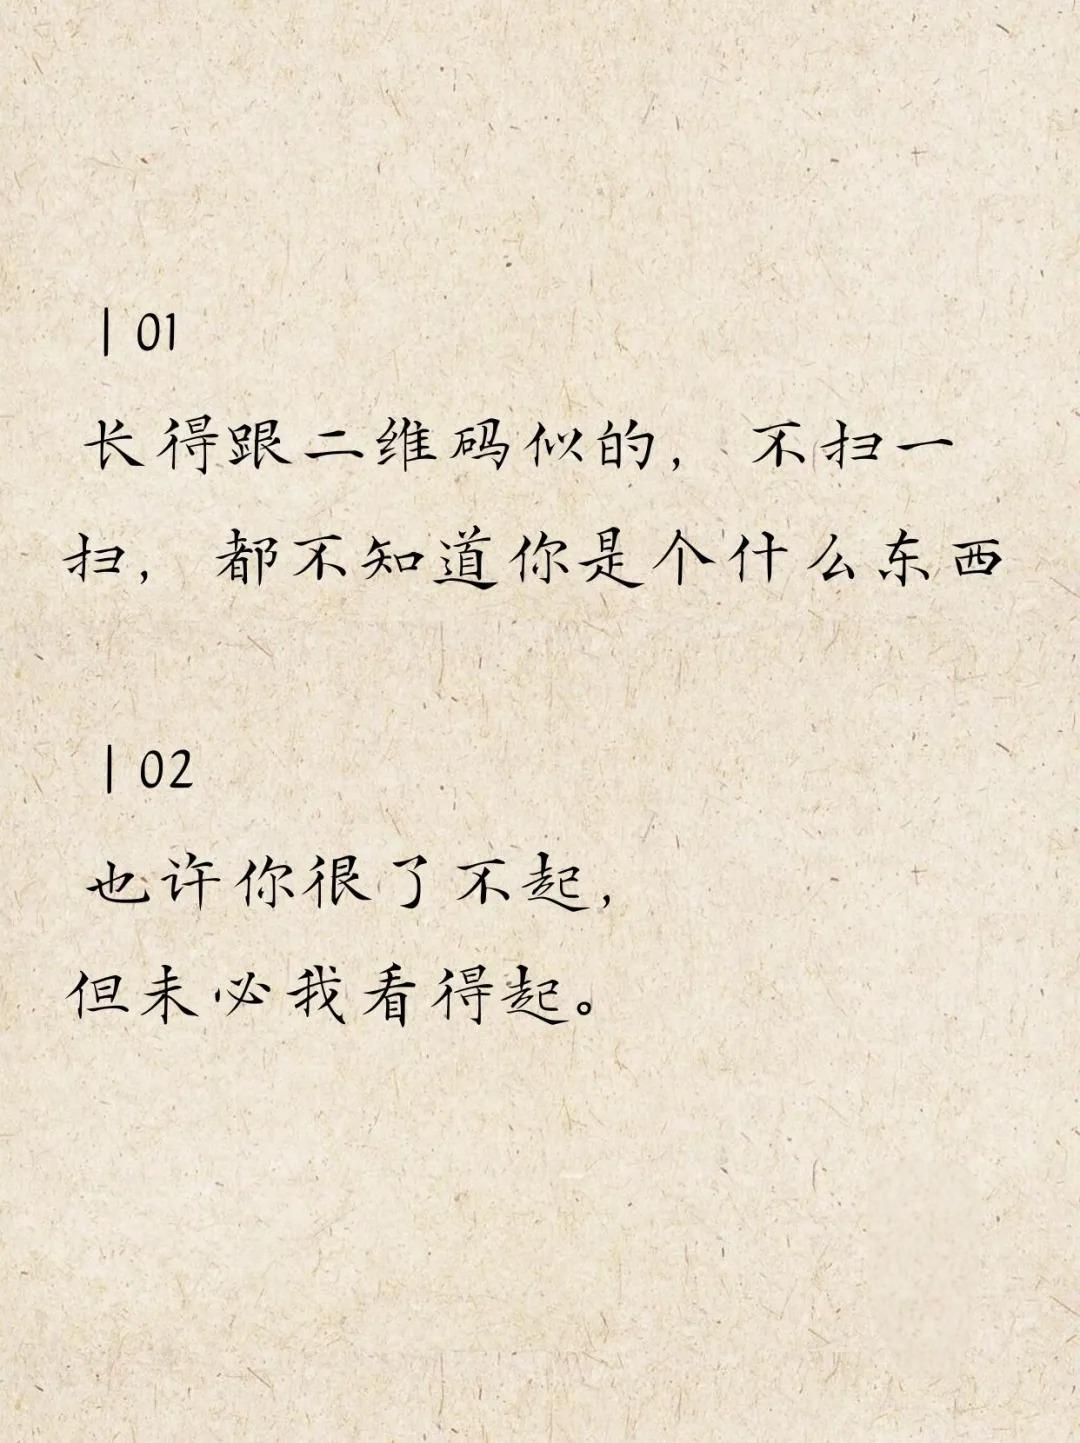 | 01
长得跟二维码似的，不扫一
扫，都不知道你是个什么东西
| 02
也许你很了不起，
但未必我看得起。